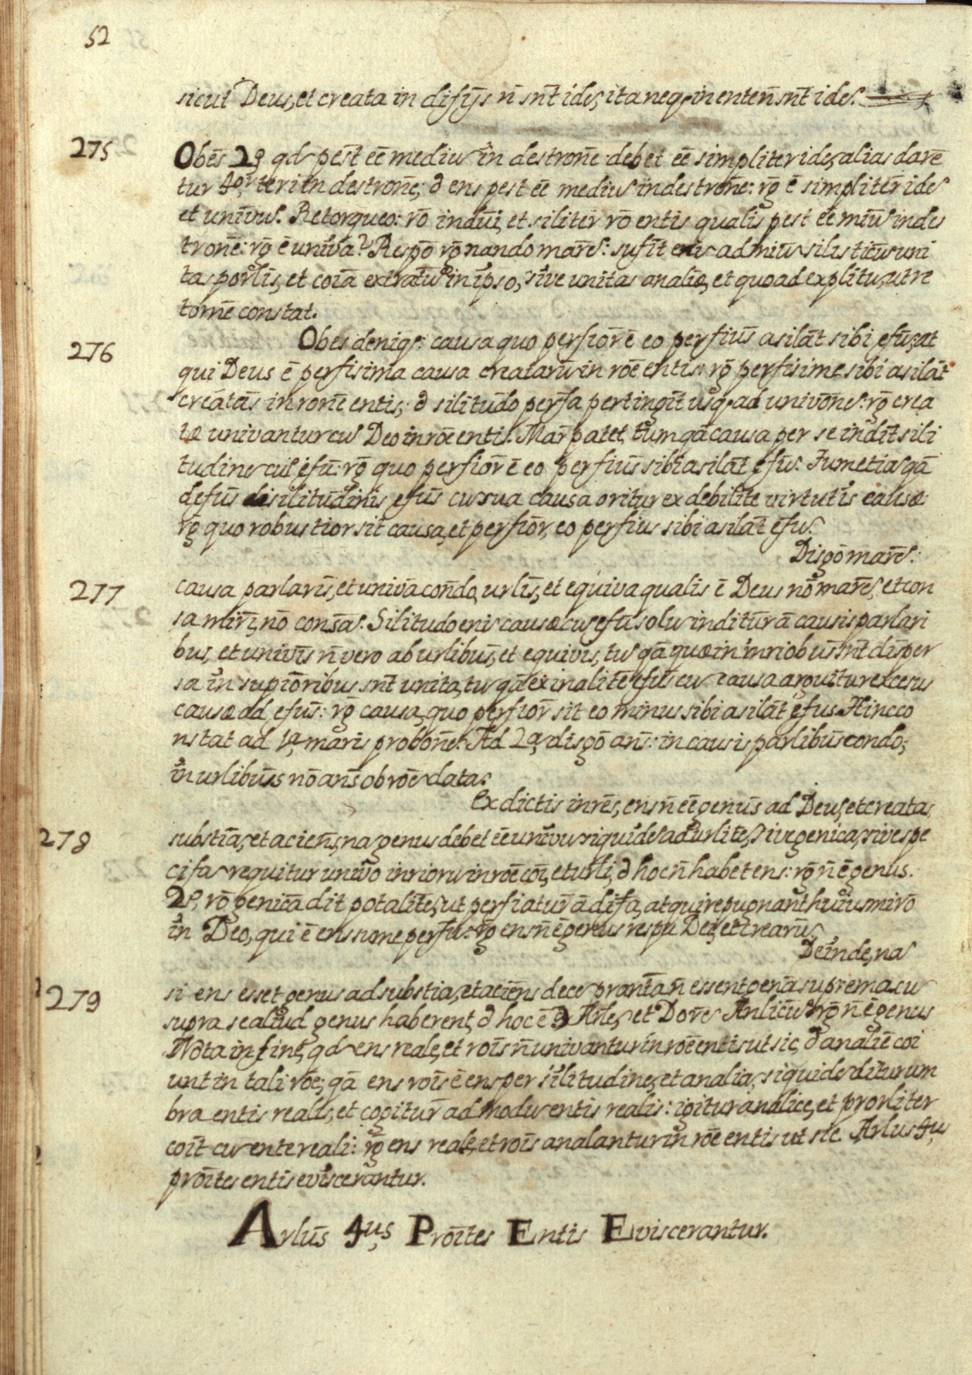 52
sicut Deus, et creata in difijs n̄ snt̄ ides, ita neq, in enten̄ snt̄ ides.
275
Obēs 2º qd pēst ēē mediū in destrone debet ēē simpliter ides, alias dare
tur 4or teri in destrone; ð ens pest ēē mediū in destrone: rg ē simpliter ides
et univus. Retorqueo: rō indui, et siliter rō entis qualis pest ēē miū in des
trone: rg ē univa? Respō rg nando mare: sufit enis ad miū silis
tas porlis, et coiā extratuˢ in ipso, sive unitas analia, et quoad explitu, ut re
torne constat.
276
Obes deniq: causa quo persior ē eo persius asilāt sibi efus, at
qui Deus ē persisima causa creatarū in rōe entis: rg persisime sibi asilāt
creatas in rone entis; ð silitudo persa pertingit usq ad univone: rg crea
tæ univantur cū Deo in rōe entis. Mar patet, tum qā causa per se indit sili
tudine cuˢ efu: rg quo persior ē eo persius sibi asilāt efus. Tum etia qā
defus disilitudinis efus cuˢ sua causa oritur ex debilite virtutis causæ
rg quo robustior sit causa, et persior, eo persius sibi asilāt efus.
Disgo mare:
277
causa parlaris, et univa condo, urlis, et equiva qualis ē Deus no mare, et con
sa miri, no consa. Silitudo enis causæ cuˢ efu solu inditur ā causis parlari
bus, et univis n̄ vero ab urlibus, et equivis, tu qā quæ in inriobus snt̄ disper
sa in supioribus snt̄ unita, tu qā ex inalite efus cu causa arguitur excesus
causæ ad efus: rg causa, quo persior sit eo minus sibi asilāt efus. Hinc co
nstat ad 1a maris probone. Ad 2a disgo ans: in causis parlibus condo;
in urlibus no ans ob rōe data.
Ex dictis infres, ens n̄ ēē genus ad Deus, et creatas
278
substia, et aciens, na genus debet ēē univu siquides ad urlite, sive genica, sive spe
cifa requitur univo inriorū in rōe coi, et urli, ð hoc n̄ habet ens: rg n̄ ē genus.
2º, rō genica dit potalite, ut persiatur ā difa, atqui repugnant huiusmirō
in Deo, qui ē ens sume persus: rg ens n̄ ē genus respu Dei, et crearus.
Deinde, na
279
si ens esset genus ad substia, et aciens dece pranta n̄ essent gena suprema cu
supra se aliud genus haberent, ð hoc ē ꝯ Arles, et Dore Anlicu rg n̄ ē genus
Nota in fine, qd ens reale, et rois n̄ univantur in rōe entis ut sic, ð analiē coi
unt in tali rōe; qā ens rois ē ens per silitudine, et analia, siquides ditur um
bra entis realis, et cogitur ad modu entis realis: igitur analice, et prorliter
coit cu ente reali: rg ens reale, et rois analantur in rōe entis ut sic. Arlus 4us
proites entis eviscerantur.
Arlus 4us Proites Entis Eviscerantur.